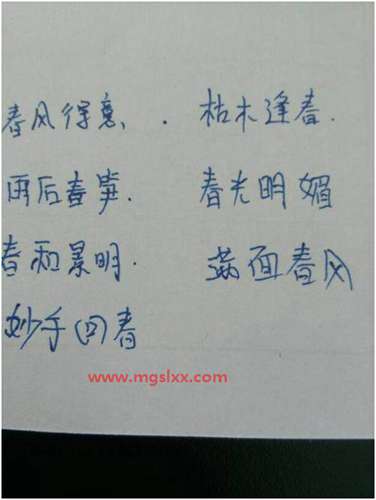 春风得意、. 枯木逢春.
雨后春笋. 春光明媚
春和景明. 满面春风
妙手回春
www.mgslxx.com